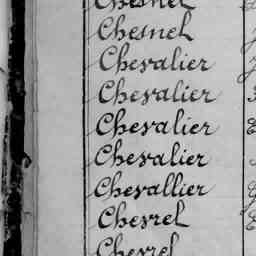 Chesnel
Chesnel
Chevalier
Chevalier
Chevalier
Chevalier
Chevallier
Chevrel
Chevrel